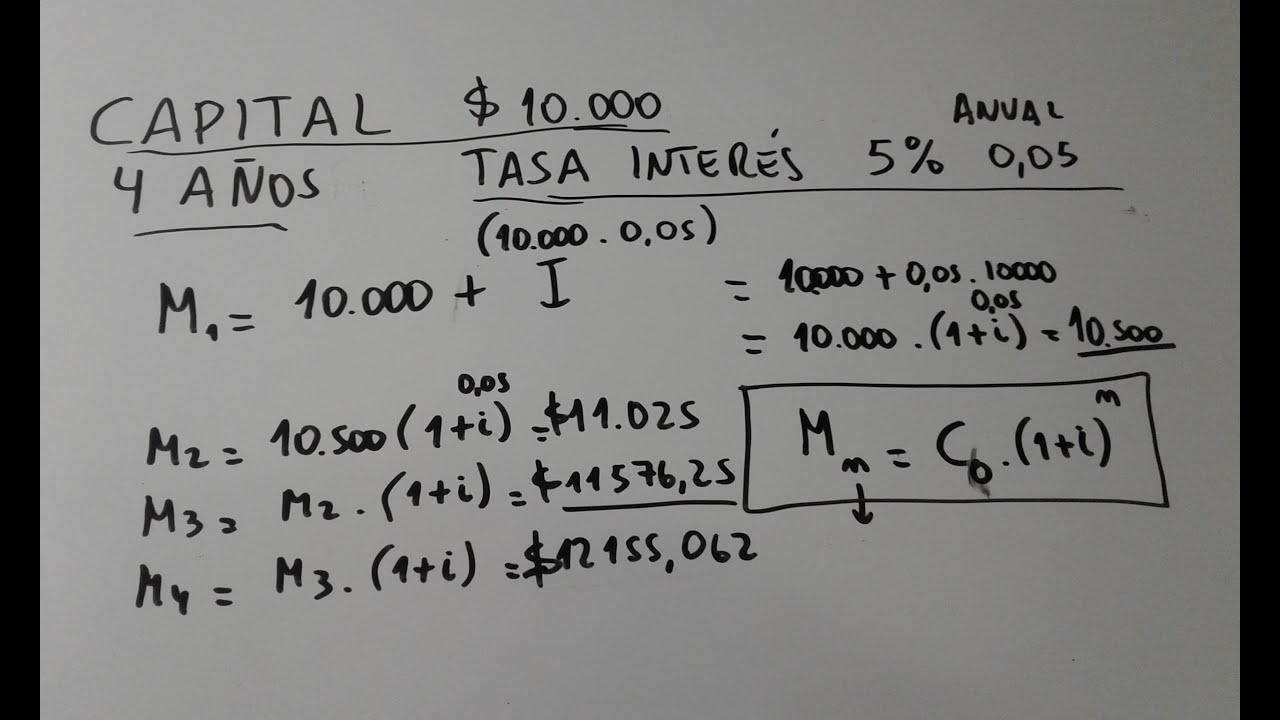 CAPITAL $ 10.000
ANUAL
4 AÑOS TASA INTERÉS 5% 0,05
(10.000 . 0,05)
M1 = 10.000 + I = 10.000 + 0,05 . 10000
0,05
= 10.000 . (1+i) = 10.500
0,05
M2 = 10.500 (1+i) = $11.025
M3 = M2 . (1+i) = $11576,25
M4 = M3 . (1+i) = $12155,062
Mn = C0 . (1+i)^n